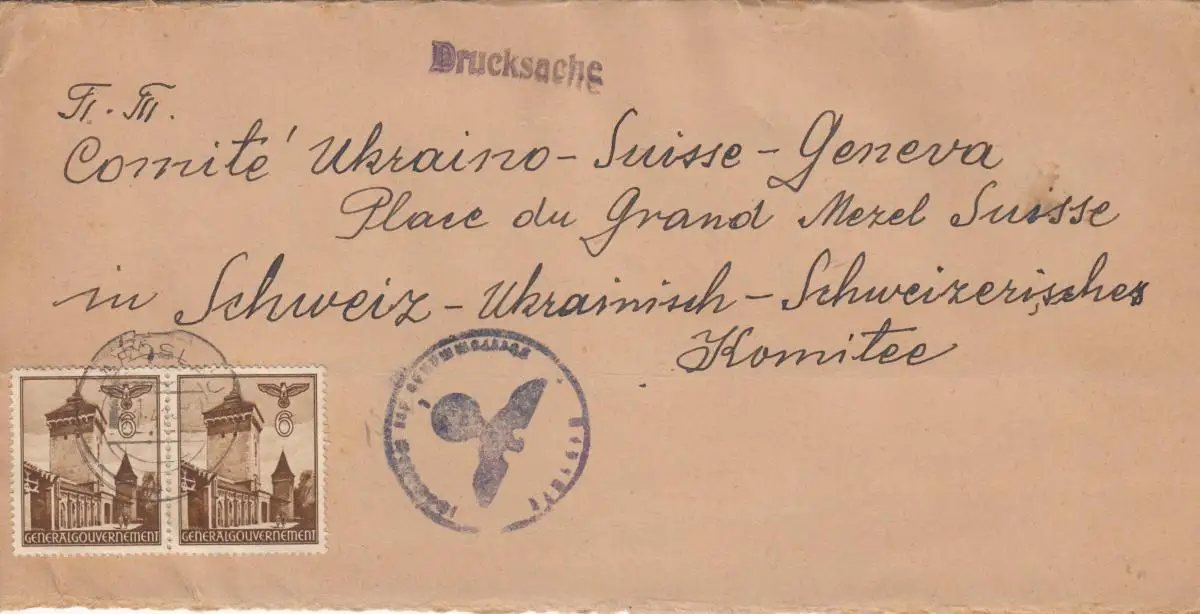 Drucksache
П. Т.
Comité Ukraino-Suisse-Geneva
Place du Grand Mezel Suisse
in Schweiz-Ukrainisch-Schweizerisches
Komitee
6
GENERALGOUVERNEMENT
6
GENERALGOUVERNEMENT